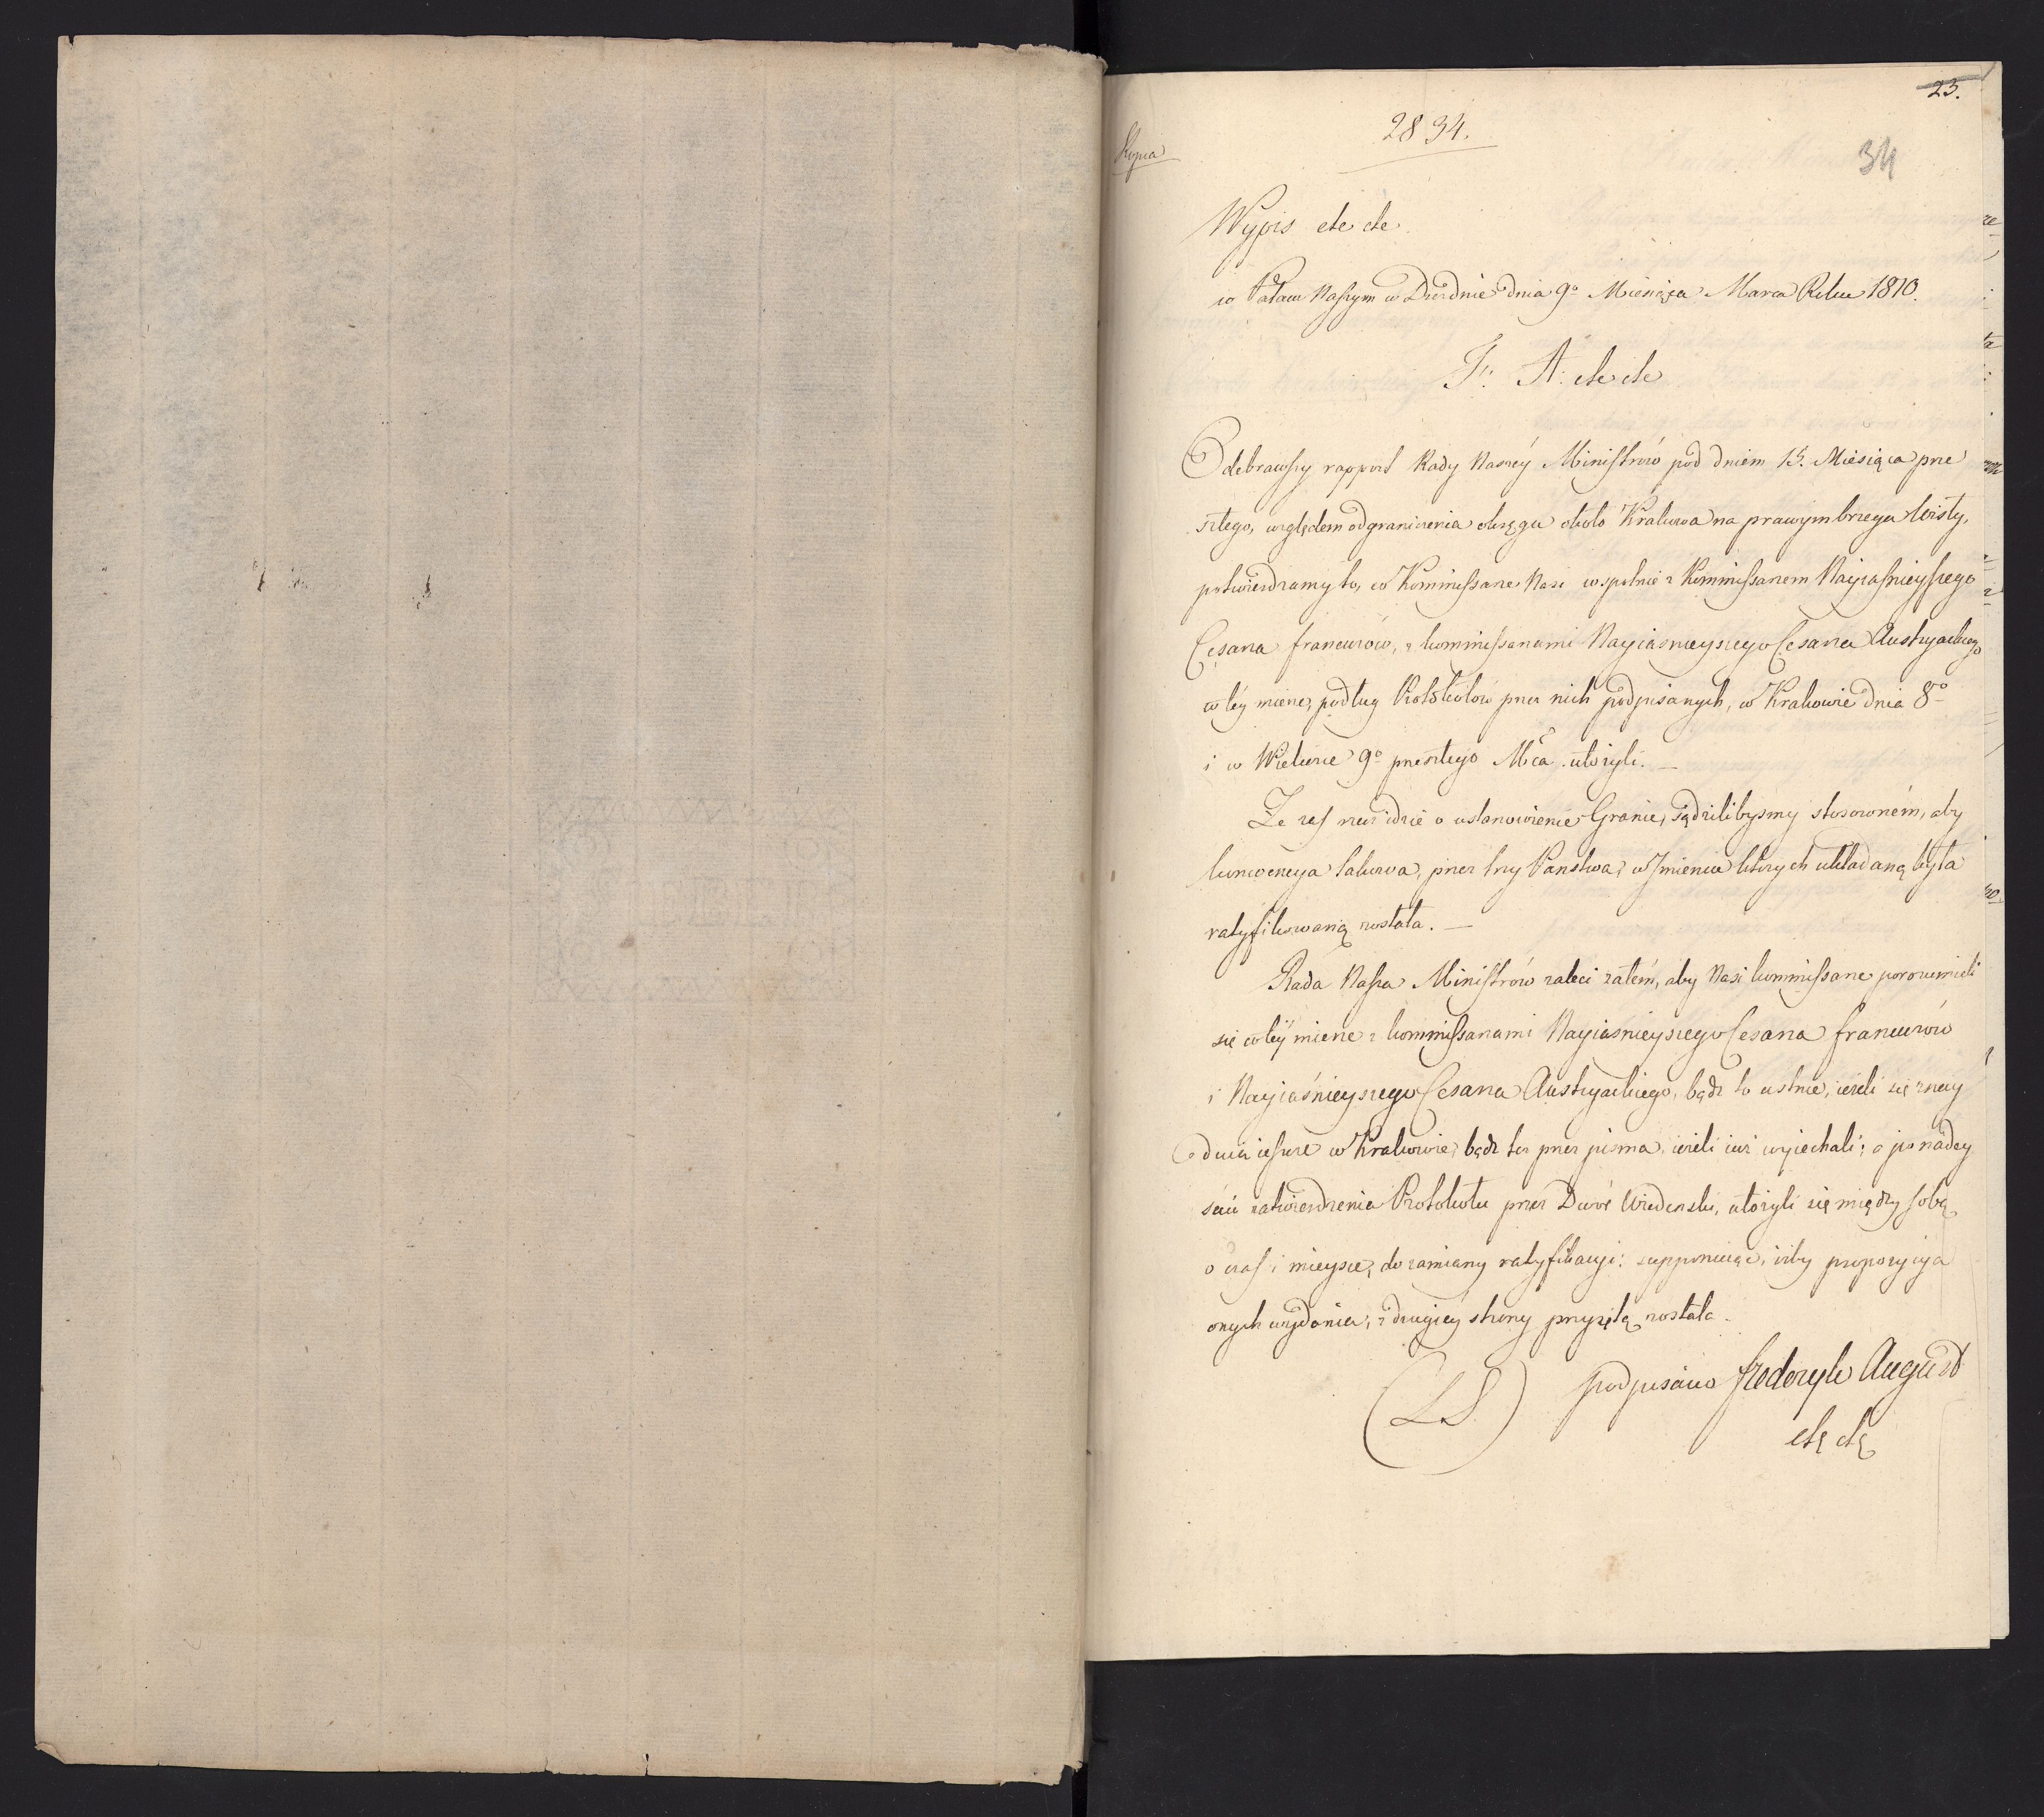 25.
2834.
34
Kopia
Wypis etc etc
w Pałacu Naszym w Dreźnie dnia 9º Miesiąca Marca Roku 1810.
F: A: etc etc
Odebrawszy rapport Rady Naszéy Ministrów pod dniem 15. Miesiąca prze
szłego, względem odgraniczenia okręgu około Krakowa na prawym brzegu Wisły,
potwierdzamy to, co Kommissarze Nasi wspolnie z Kommissarzem Nayiaśnieyszego
Cesarza francuzów, z kommissarzami Nayiasnieyszego Cesarza Austryackiego
w téy mierze, podług Protokołów przez nich podpisanych, w Krakowie dnia 8º
i w Wieliczce 9º przeszłego Mca ułożyli. —
Że zaś rzecz idzie o ustanowienie Granic, sądzilibysmy stosowném, aby
konwencya takowa, przez trzy Panstwa, w Jmieniu których układaną była
ratyfikowaną została. —
Rada Nasza Ministrów zaleci zatém, aby Nasi kommissarze porozumieli
się w téy mierze z kommissarzami Nayiasnieyszego Cesarza francuzów
i Nayiaśnieyszego Cesarza Austryackiego, bądź to ustnie, ieżeli się znay
duią ieszcze w Krakowie, bądź też przez pisma, ieżeli iuż wyiechali; a po nadey
ściu zatwierdzenia Protokołu przez Dwór Wiedeński, ułożyli się między sobą
o czas i mieysce, do zamiany ratyfikacyi: supponuiąc, iżby propozycya
onych wydania, z drugiey strony przyiętą została.
(L.S.) podpisano Frederyk August
etc etc